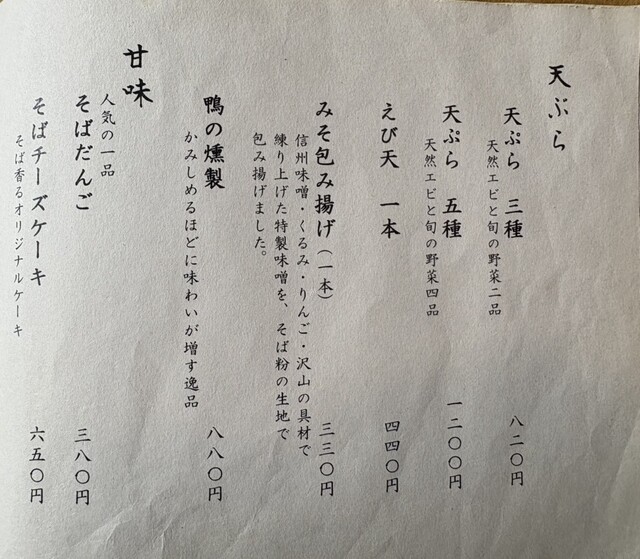 天ぷら
天ぷら 三種 八二〇円
天然エビと旬の野菜二品
天ぷら 五種 一二〇〇円
天然エビと旬の野菜四品
えび天 一本 四四〇円
みそ包み揚げ（一本） 三三〇円
信州味噌・くるみ・りんご・沢山の具材で
練り上げた特製味噌を、そば粉の生地で
包み揚げました。
鴨の燻製 八八〇円
かみしめるほどに味わいが増す逸品
甘味
人気の一品
そばだんご 三八〇円
そばチーズケーキ 六五〇円
そば香るオリジナルケーキ